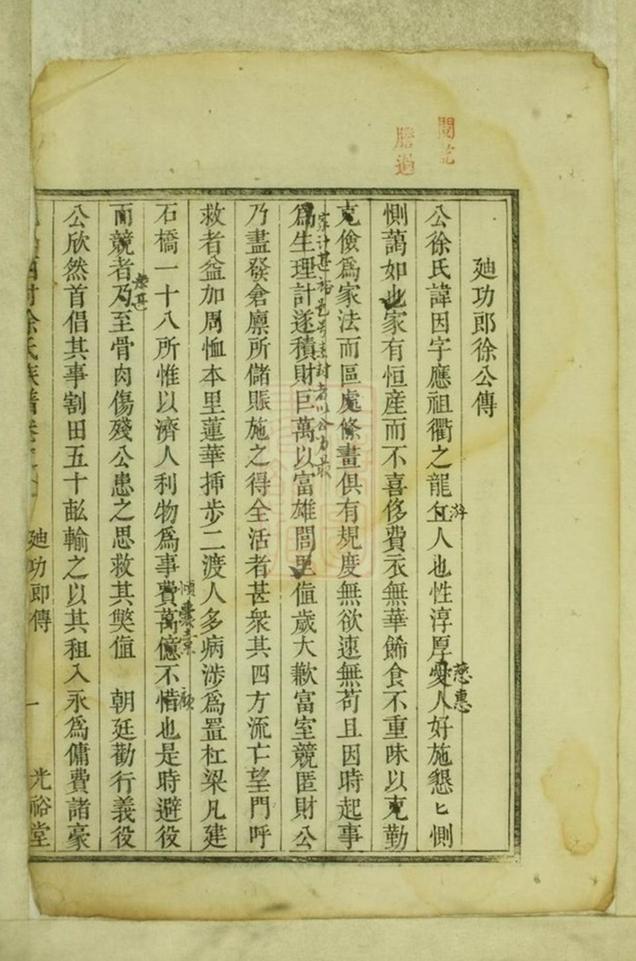 廸功郎徐公傳
公徐氏諱因字應祖衢之龍㐀人也性淳厚愛人好施懇匕惻
惻藹如也家有恒産而不喜侈費衣無華飾食不重味以克勤
克儉爲家法而區處條畫俱有規度無欲速無苟且因時起事
爲生理計遂積財巨萬以富雄閭里値歲大歉富室競匿財公
乃盡發倉廪所儲賑施之得全活者甚衆其四方流亡望門呼
救者益加周恤本里蓮華揷步二渡人多病涉爲置杠梁凡建
石橋一十八所惟以濟人利物爲事費萬億不惜也是時避役
而競者乃至骨肉傷殘公患之思救其獘値 朝廷勸行義役
公欣然首倡其事割田五十畝輸之以其租入永爲傭費諸豪
村徐氏族譜卷之
廸功郎傳
一
光裕堂
游
慈惠